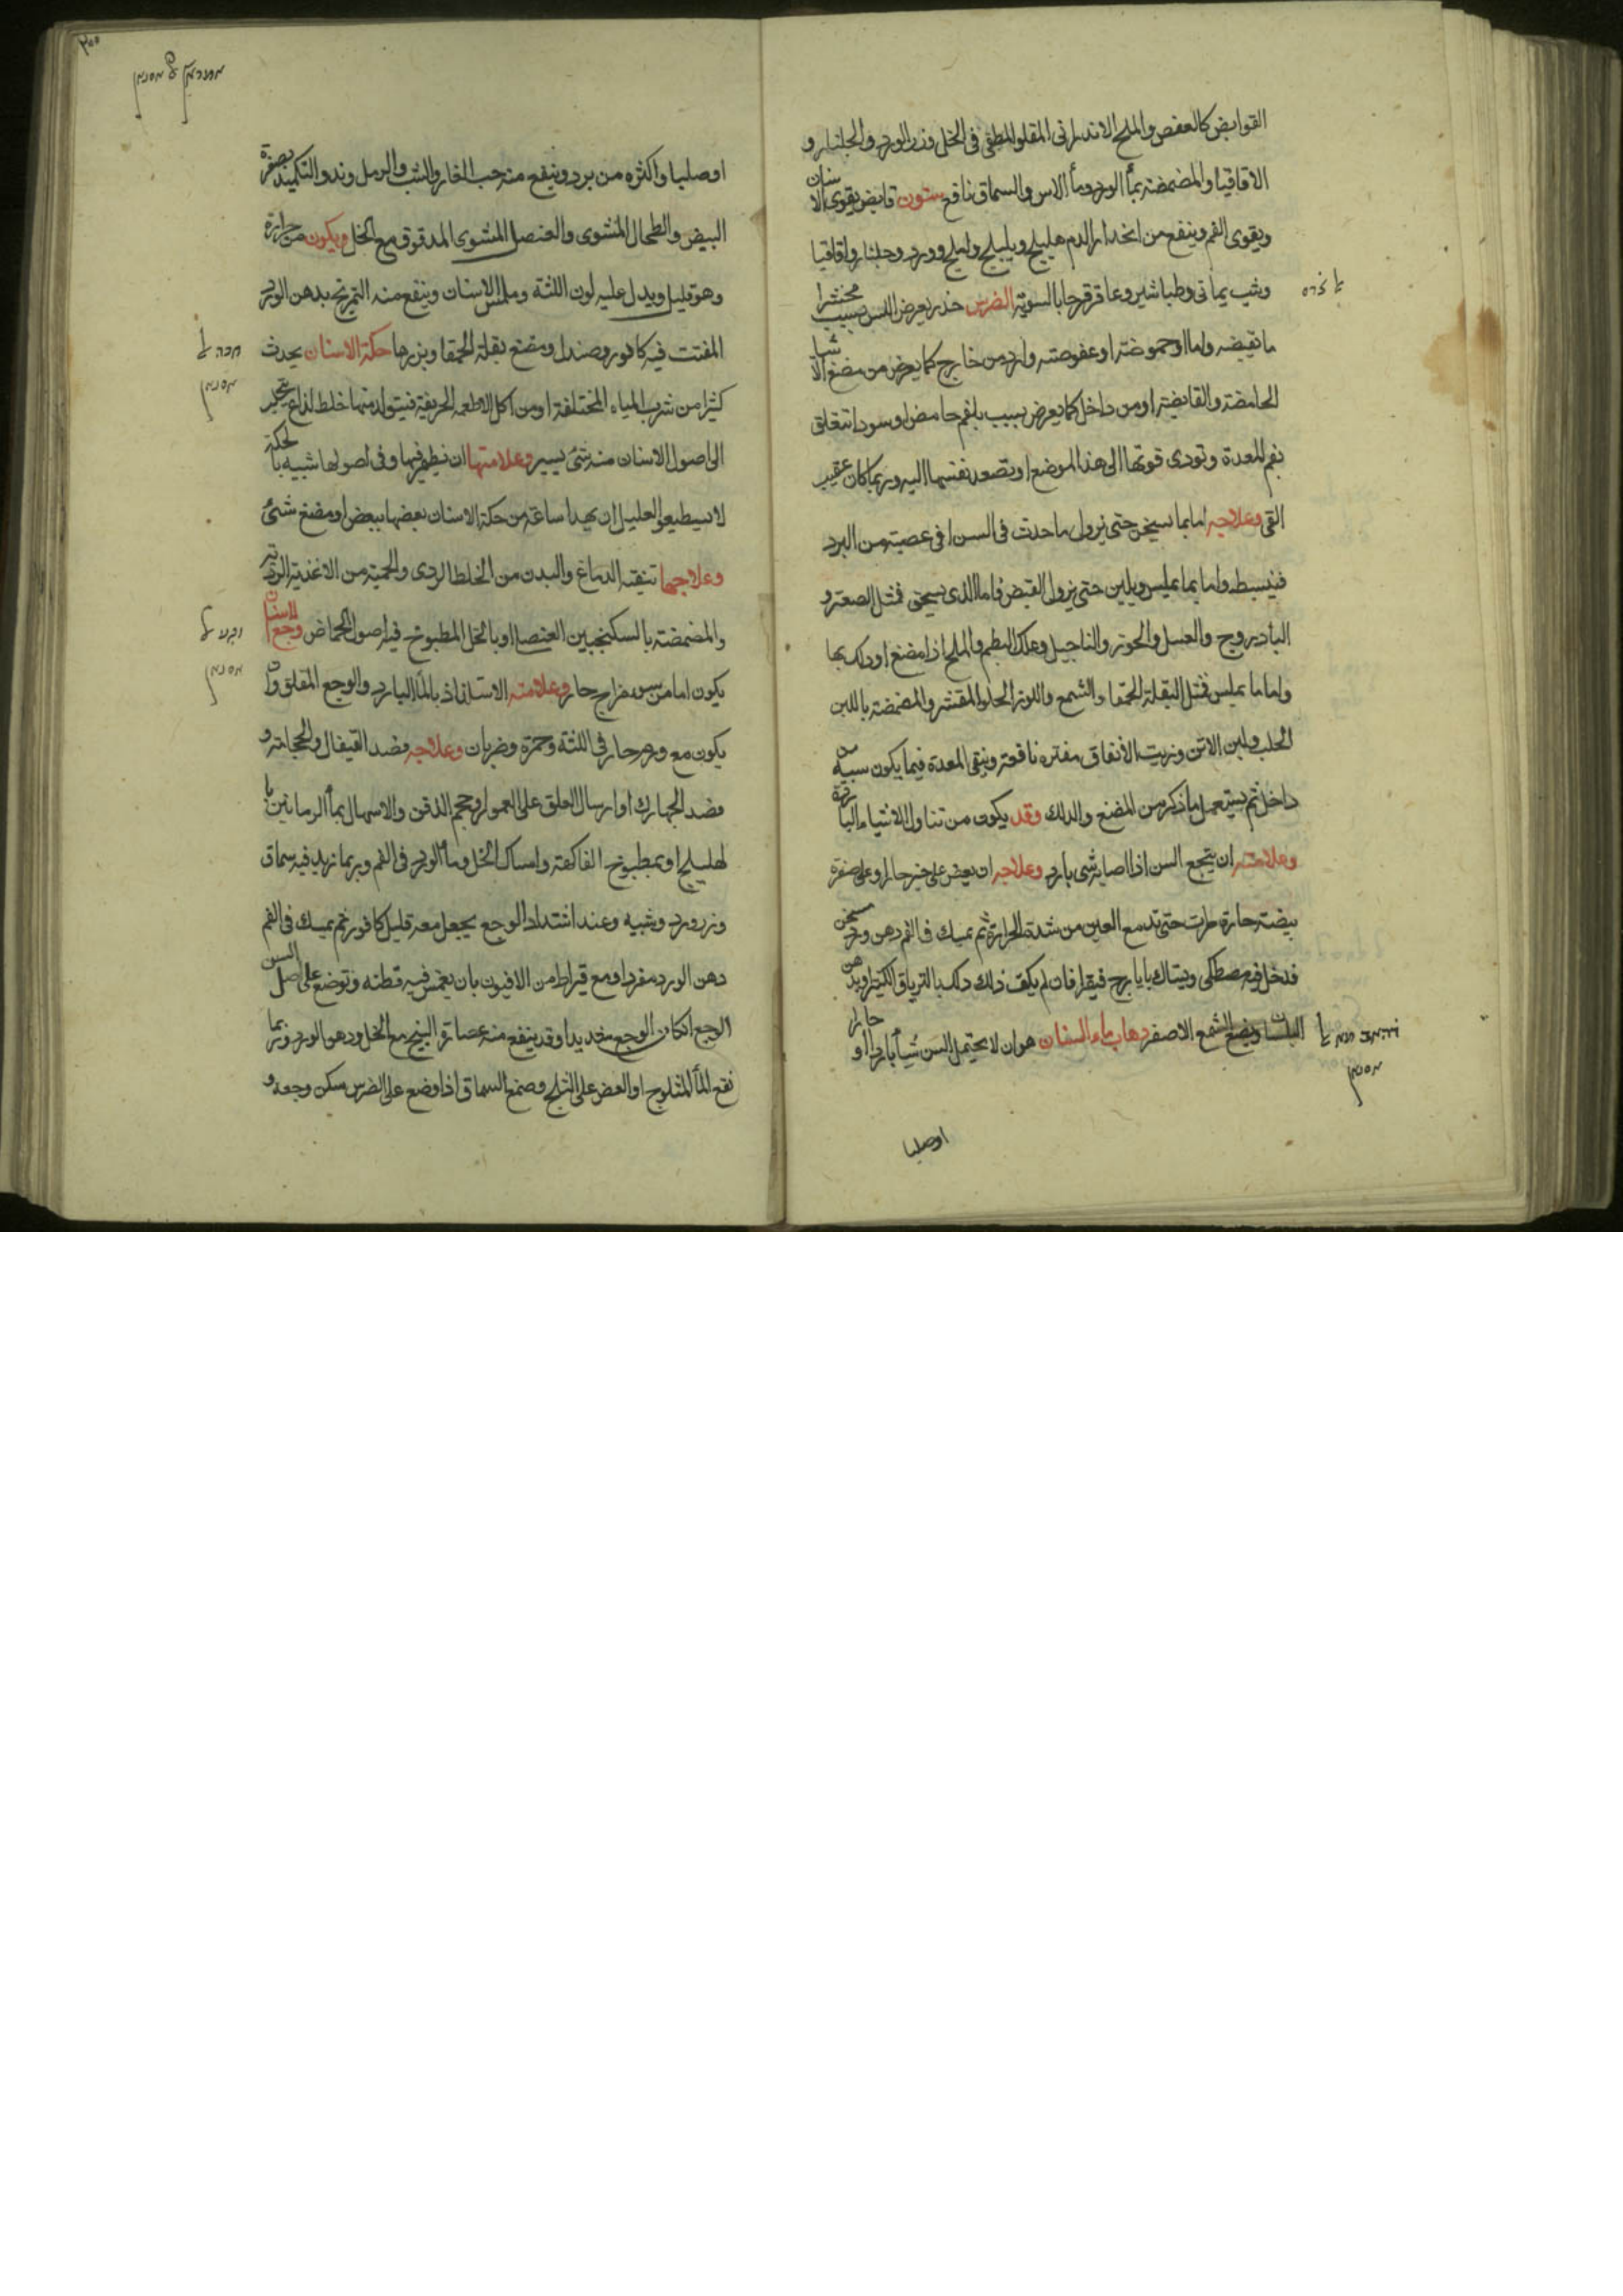 القوابض كالعفص والملح الاندرانى المقلو المطفى فى الخل وزر الورد والجلنار و
الاقاقيا والمضمضة بماء الورد وماء الاس والسماق نافع سنون قابض يقوى الاسنان
ويقوى الفم وينفع من انحدار الدم هليلج وبليلج واملج وورد وجلنار واقاقيا
وشب يمانى وطباشير وعاقرقرحا بالسوية الضرس خدر يعرض للسن بسبب
ما تقبضه واما حموضة او عفوصته وارد من خارج كما يعرض من مضغ الاشيا
الحامضة والقابضة او من داخل كما يعرض بسبب بلغم حامض او سودا تتعلق
بفم المعدة وتودى قوتها الى هذا الموضع او بصعود نفسها اليه وربما كان عقيب
القى وعلاجه اما بما يسخن حتى يزول ما حدث فى السن او فى عصبة من البرد
فينبسط واما بما يملس ويلين حتى يزول القبض فاما الذى يسخن فمثل الصعتر و
البادروج والعسل والجوز والنارجيل وعلك البطم والملح اذا مضغ او دلك بها
واما ما يملس فمثل البقلة الحمقا والشمع واللوز الحلو المقشر والمضمضة باللبن
الحليب ولبن الاتن وزيت الانفاق مفتره نافعة وينقى المعدة فيما يكون سببه من
داخل ثم يستعمل ما ذكر من المضغ والدلك وقد يكون من تناول الاشياء الباردة
وعلامته ان يتجع السن اذا اصابه شى بارد وعلاجه ان يعض على خبز حار او على صفرة
بيضة حارة مرات حتى تدمع العين من شدة الحرارة ثم يمسك فى الفم دهن ورد مسخن
قد حل فيه مصطكى ويستاك بايارج فيقرا فان لم يكف ذلك دلك بالترياق الكبير او بدهن
البلسان ويضع الشمع الاصفر ذهاب ماء الاسنان هو ان لا يحتمل السن شيأ باردا او حارا
اوصلبا
اوصلبا واكثره من برد وينفع منه حب الغار والشب والزراوند والتكميد بصفرة
البيض والطحال المشوى والعنصل المشوى المدقوق مع الخل ويكون من حرارة
وهو قليل ويدل عليه لون اللثة وملمس الاسنان وينفع منه التمريخ بدهن الورد
المفتت فيه كافور وصندل ومضغ بقلة الحمقا وبزرها حكة الاسنان يحدث
كثيرا من شرب المياه المختلفة او من اكل الاطعمة الحريفة فيتولد منها خلط لذاع يتحير
الى اصول الاسنان منه شئ يسير وعلامتها ان يظهر فيها وفى اصولها شبيه بالحكة
لا يستطيع العليل ان يهدا ساعة من حكة الاسنان بعضها ببعض او مضغ شئ
وعلاجها تنقية الدماغ والبدن من الخلط الردى والحمية من الاغذية الردية
والمضمضة بالسكنجبين العنصلى او بالخل المطبوخ فيه اصول الحماض وجع الاسنان
يكون اما من سوء مزاج حار وعلامته الاستلذاذ بالماء البارد والوجع المقلق وان
يكون مع ورم حار فى اللثة وحمرة وضربان وعلاجه فصد القيفال والحجامة و
فصد الجهارك او ارسال العلق على العمور او حجم الذقن والاسهال بماء الرمانين با
لهليلج او بمطبوخ الفاكهة وامساك الخل وماء الورد فى الفم وربما زيد فيه سماق
وزرورد وشبيه وعند اشتداد الوجع يجعل معه قليل كافور ثم يمسك فى الفم
دهن الورد مفردا ومع قيراط من الافيون بان يغمس فيه قطنه وتوضع على اصل السن
الوجع ان كان الوجع شديدا وقد ينفع منه عصارة البنج مع الخل ودهن الورد وربما
نفع الماء المثلوج او العض على الثلج وصمغ السماق اذا وضع على الضرس سكن وجعه و